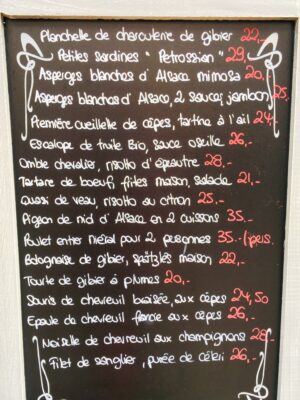 Planchette de charcuterie de gibier 22,-
Petites sardines " Petrossian " 29,-
Asperges blanches d' Alsace mimosa 20,-
Asperges blanches d' Alsace, 2 sauces, jambon 25,-
Première cueillette de cèpes, tartine à l'ail 24,-
Escalope de truite Bio, sauce oseille 26,-
Omble chevalier, risotto d'épeautre 28,-
Tartare de boeuf, frites maison, salade 21,-
Quasi de veau, risotto au citron 25,-
Pigeon de nid d' Alsace en 2 cuissons 35,-
Poulet entier Miéral pour 2 personnes 35,-/pers
Bolognaise de gibier, spätzlés maison 22,-
Tourte de gibier à plumes 20,-
Souris de chevreuil braisée, aux cèpes 24,50
Epaule de chevreuil farcie aux cèpes 26,-
Noisette de chevreuil aux champignons 28,-
Filet de sanglier, purée de céleri 26,-